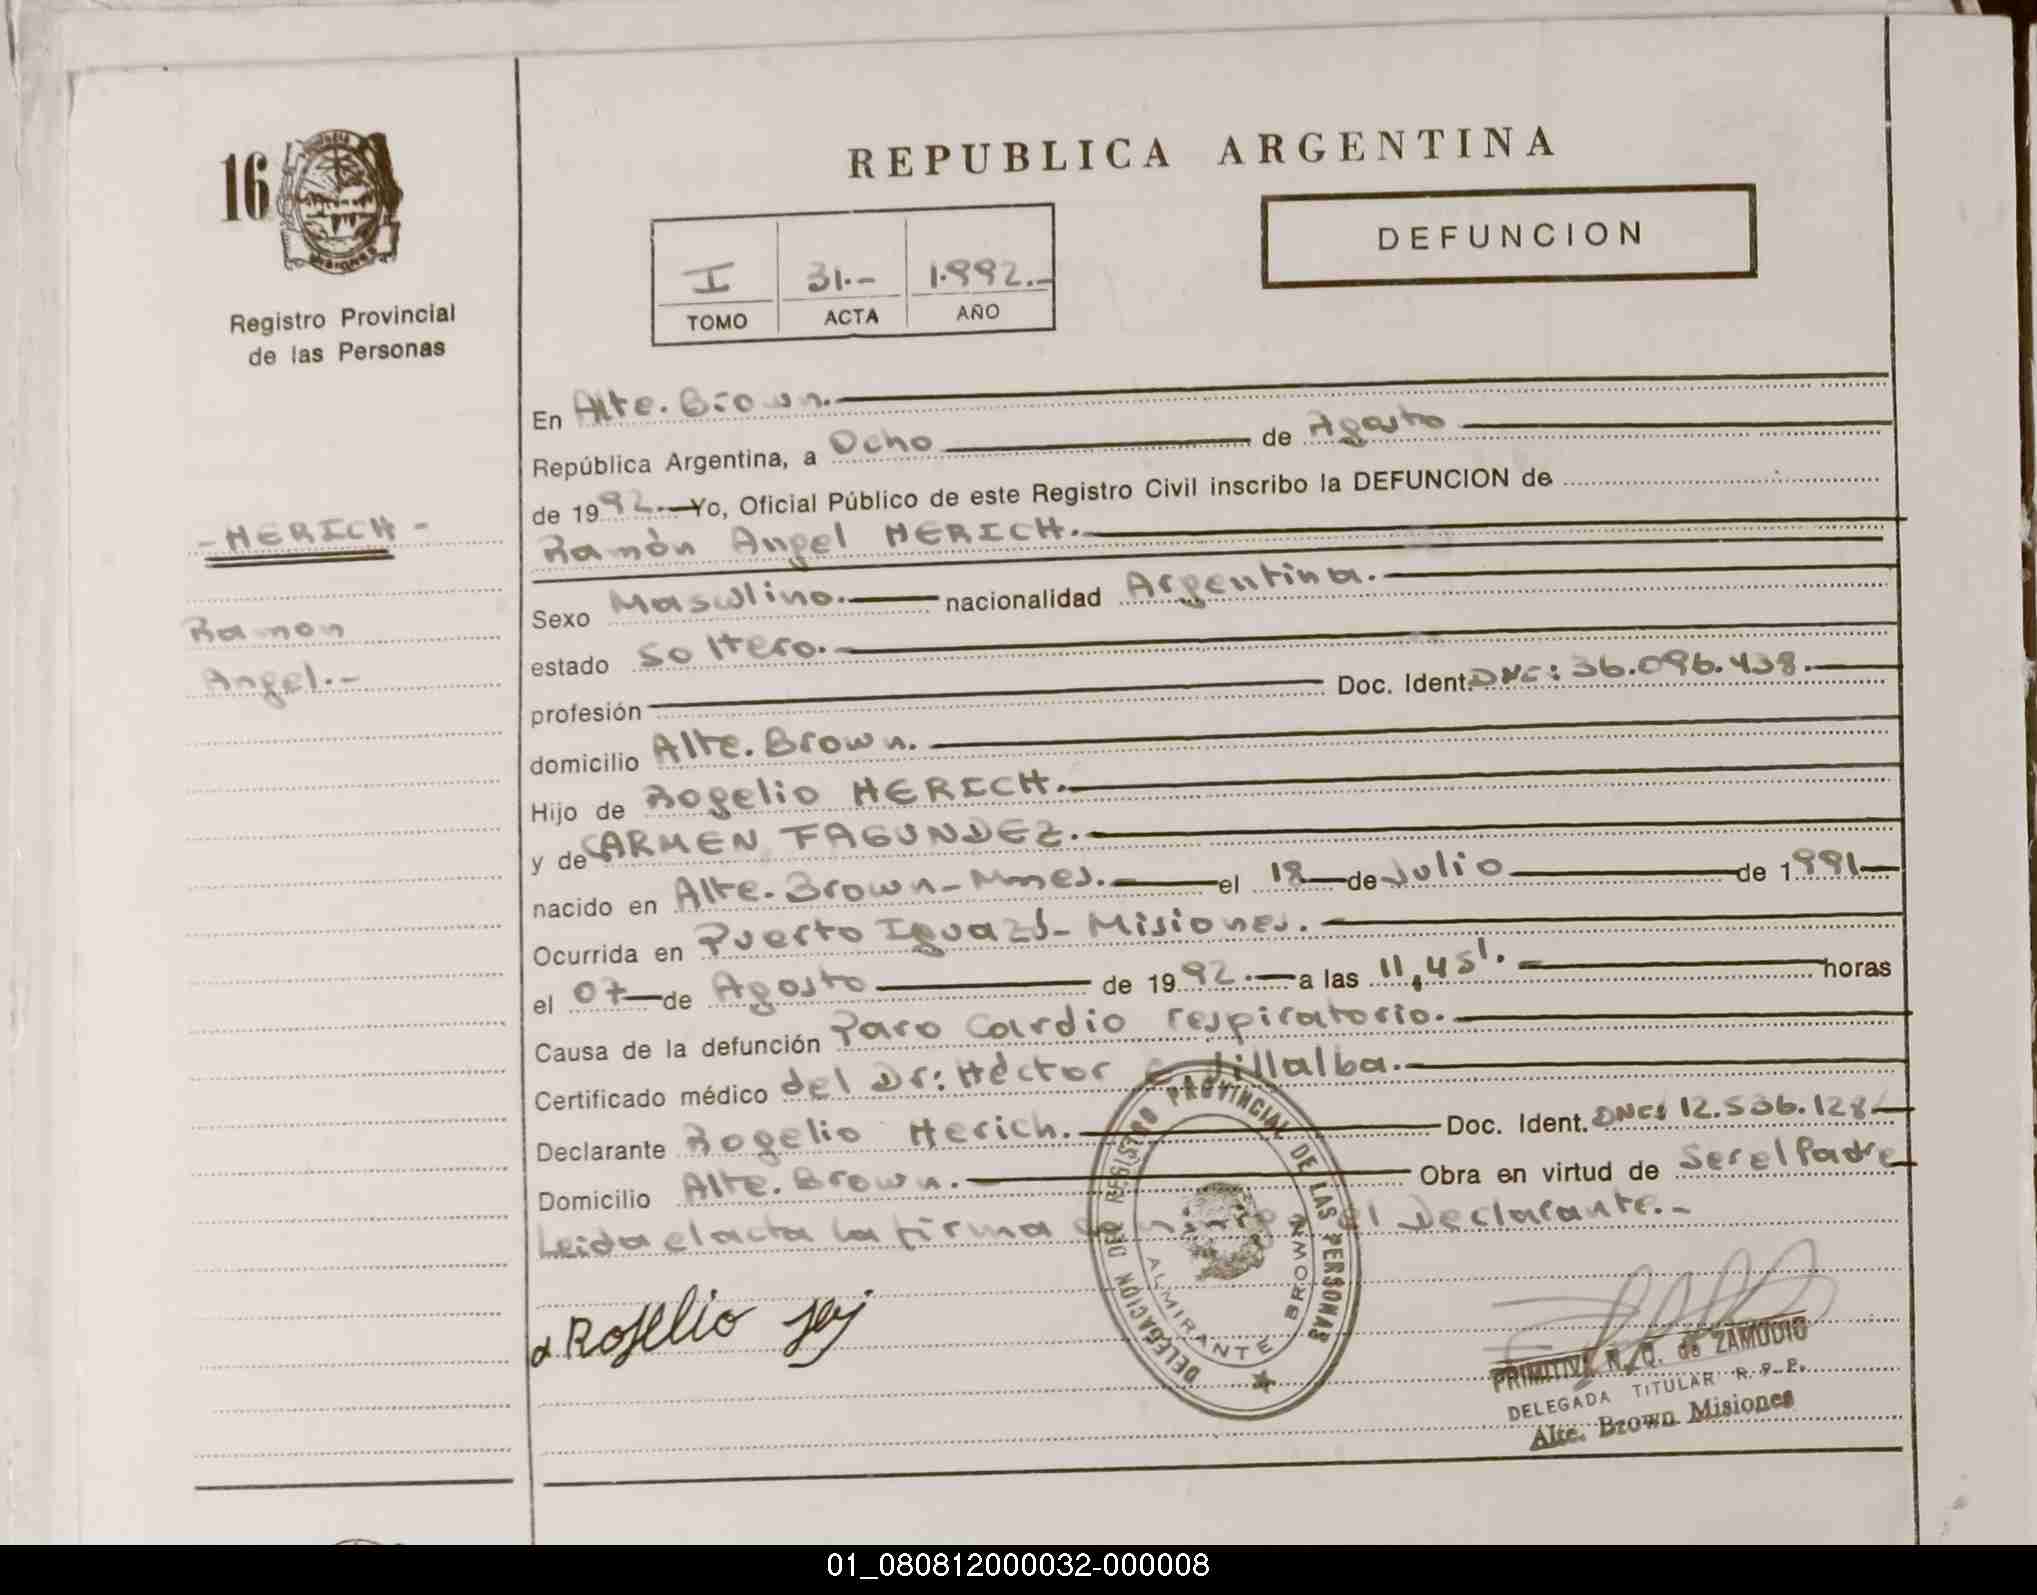 16
Registro Provincial
de las Personas
REPUBLICA ARGENTINA
DEFUNCION
I 31.- 1.992.-
TOMO ACTA AÑO
- HERICH -
Ramon
Angel.-
En Alte. Brown.
República Argentina, a Ocho de Agosto
de 1992.- Yo, Oficial Público de este Registro Civil inscribo la DEFUNCION de
Ramón Angel HERICH.
Sexo Masculino. nacionalidad Argentina.
estado Soltero.
profesión Doc. Ident. DNI: 36.096.438.
domicilio Alte. Brown.
Hijo de Rogelio HERICH.
y de CARMEN FAGUNDEZ.
nacido en Alte. Brown - Mnes. el 18 de Julio de 1991
Ocurrida en Puerto Iguazú - Misiones.
el 07 de Agosto de 1992.- a las 11,45'. horas
Causa de la defunción Paro Cardio respiratorio.
Certificado médico del Dr: Héctor Villalba.
Declarante Rogelio Herich. Doc. Ident. DNI: 12.536.128
Domicilio Alte. Brown. Obra en virtud de Ser el Padre
Leida el acta la firma el Declarante.-
DELEGACION DEL REGISTRO PROVINCIAL DE LAS PERSONAS
ALMIRANTE BROWN
PRIMITIVA N. Q. de ZAMUDIO
DELEGADA TITULAR R.P.P.
Alte. Brown Misiones
01_080812000032-000008